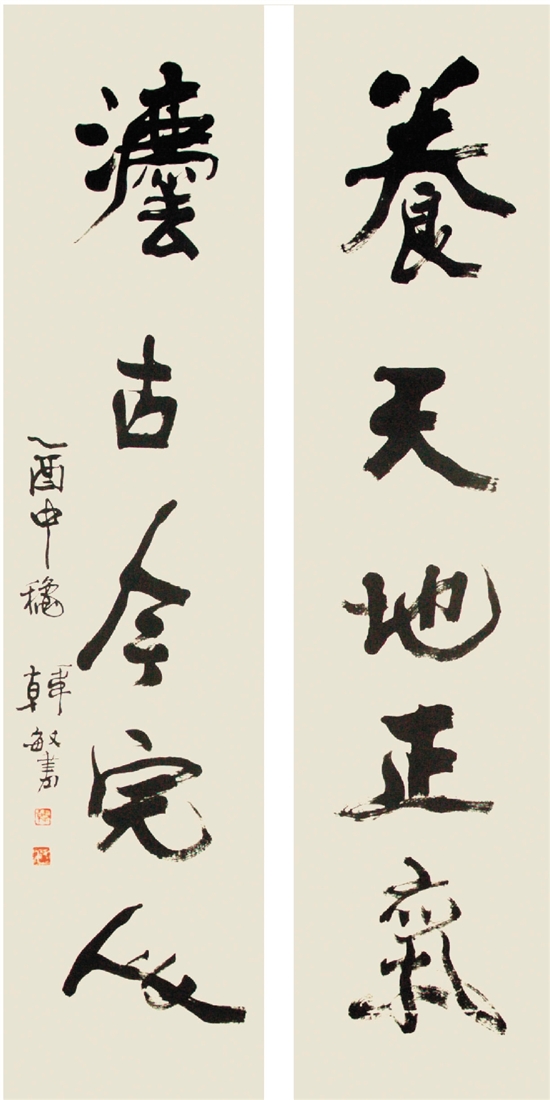 養天地正氣
灋古今完人
乙酉中穐 韓敏書